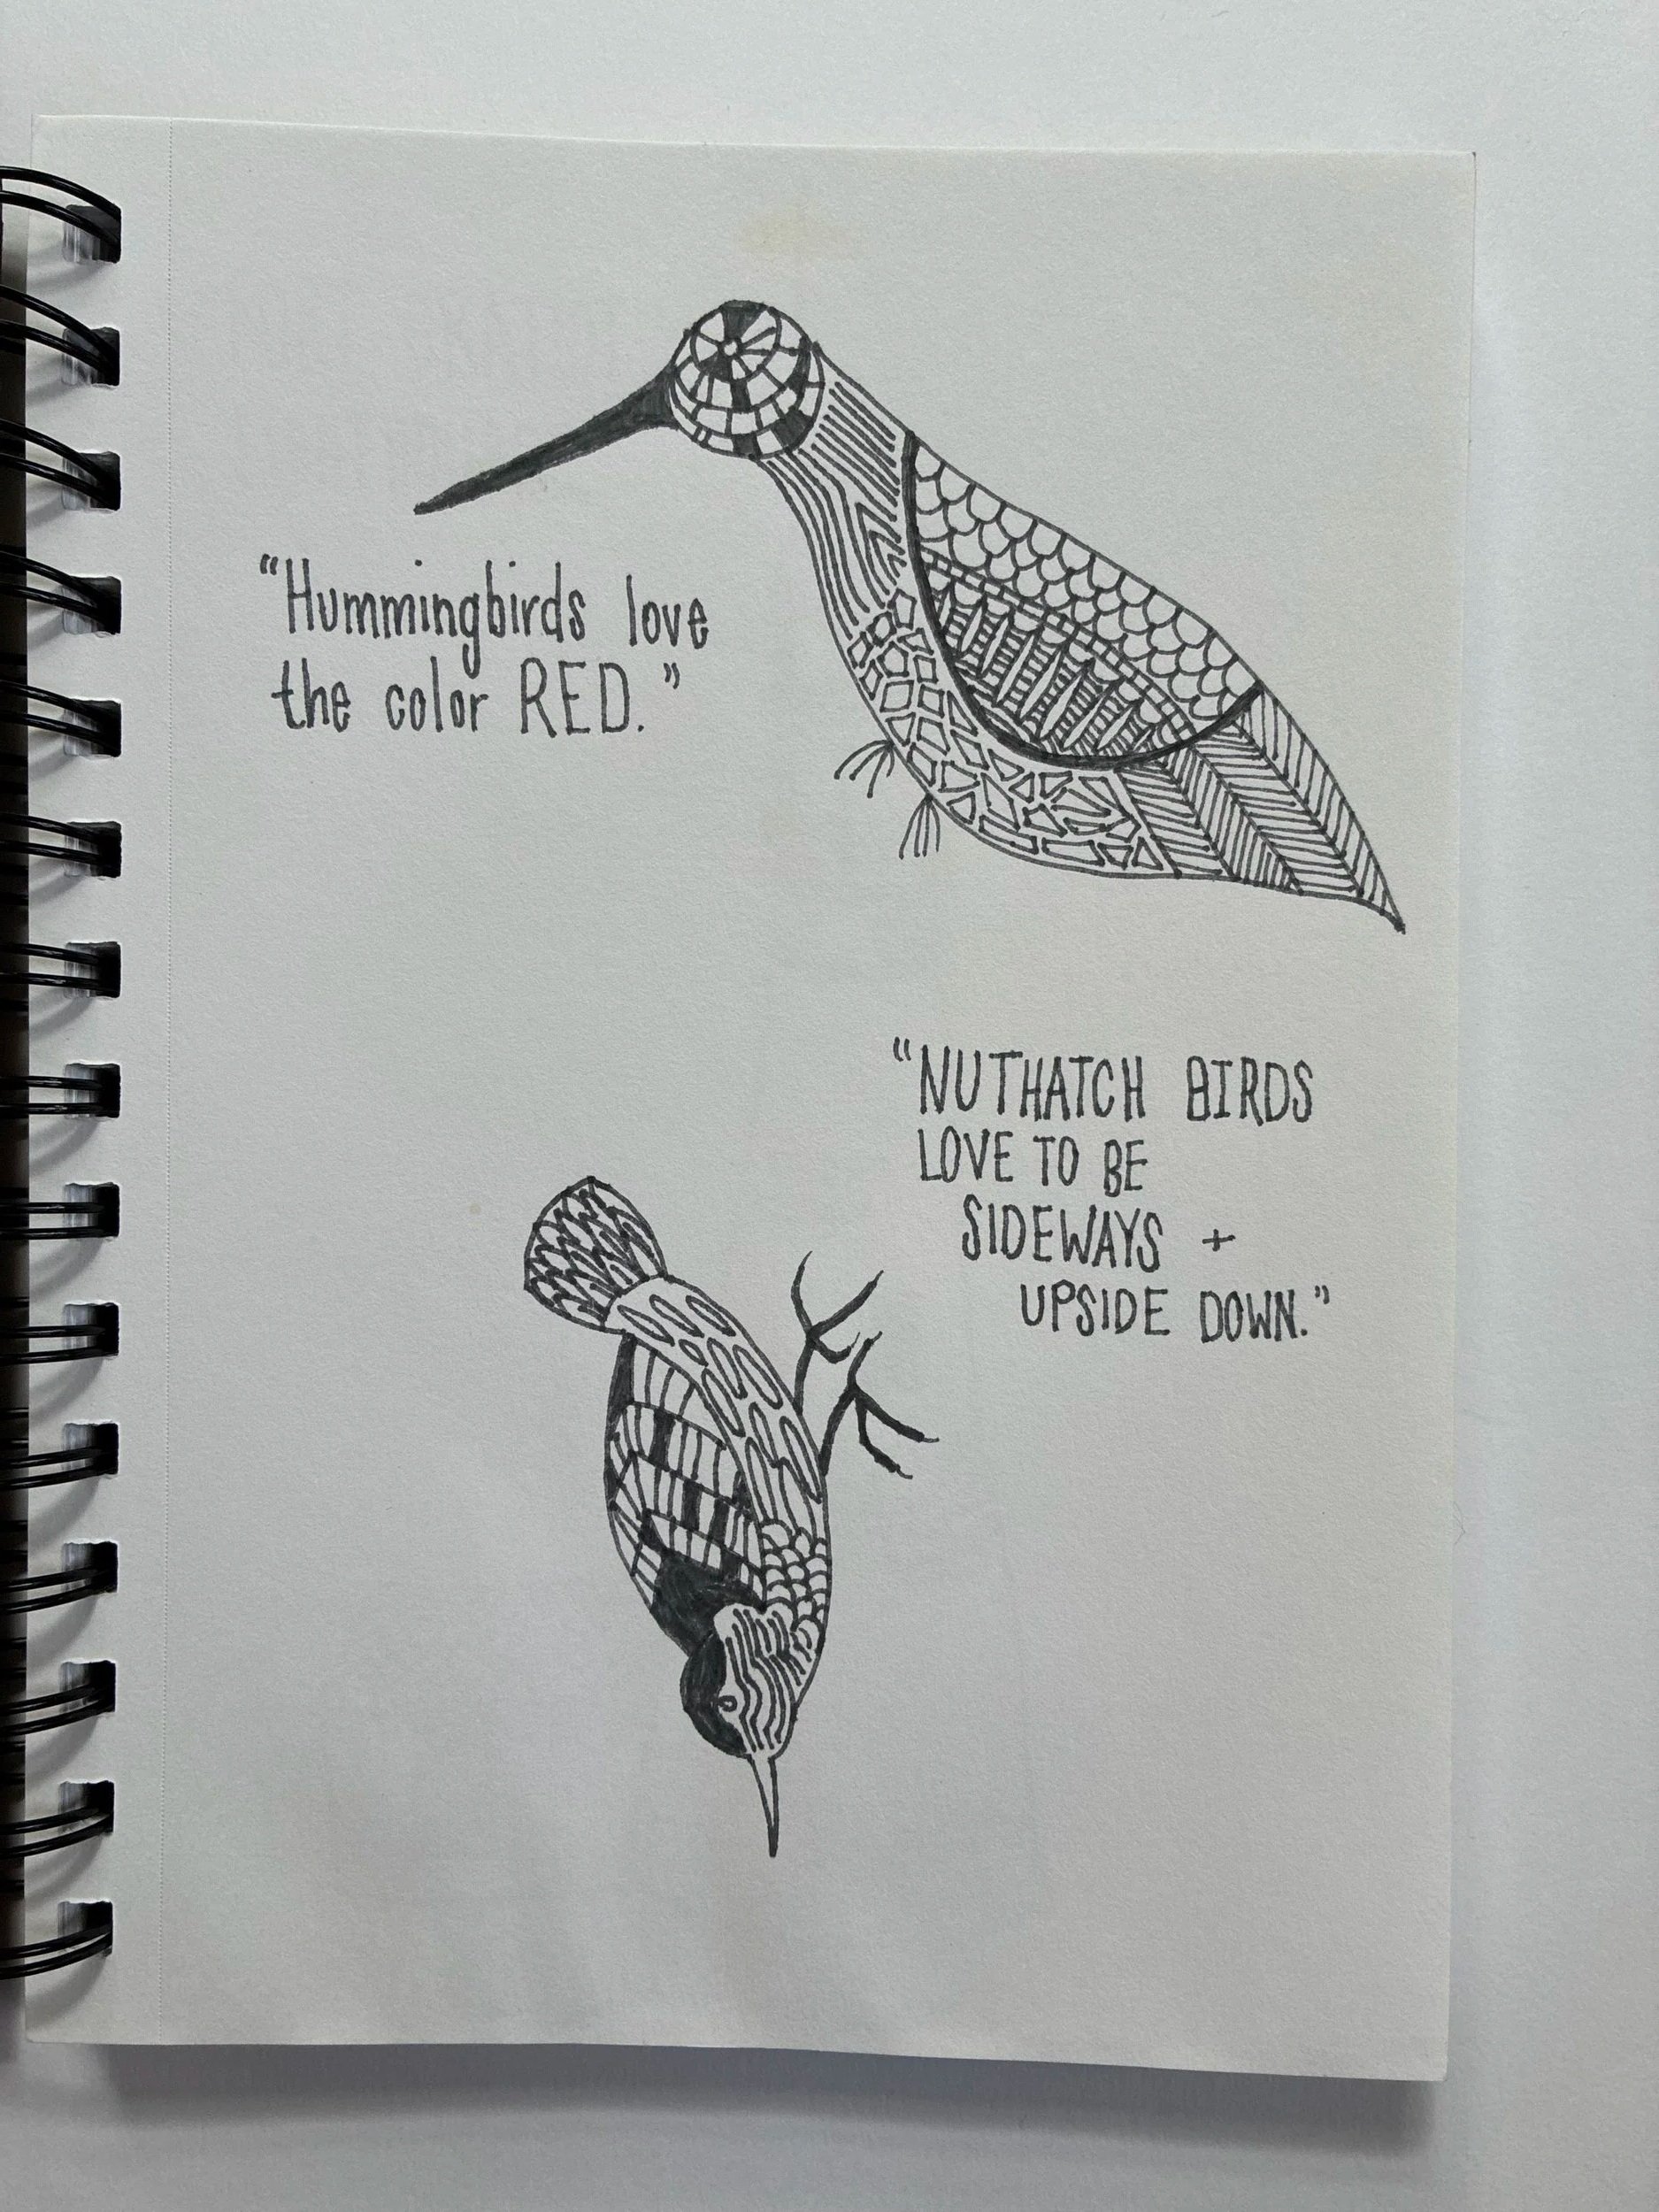 “Hummingbirds love
the color RED.”
“NUTHATCH BIRDS
LOVE TO BE
SIDEWAYS +
UPSIDE DOWN.”